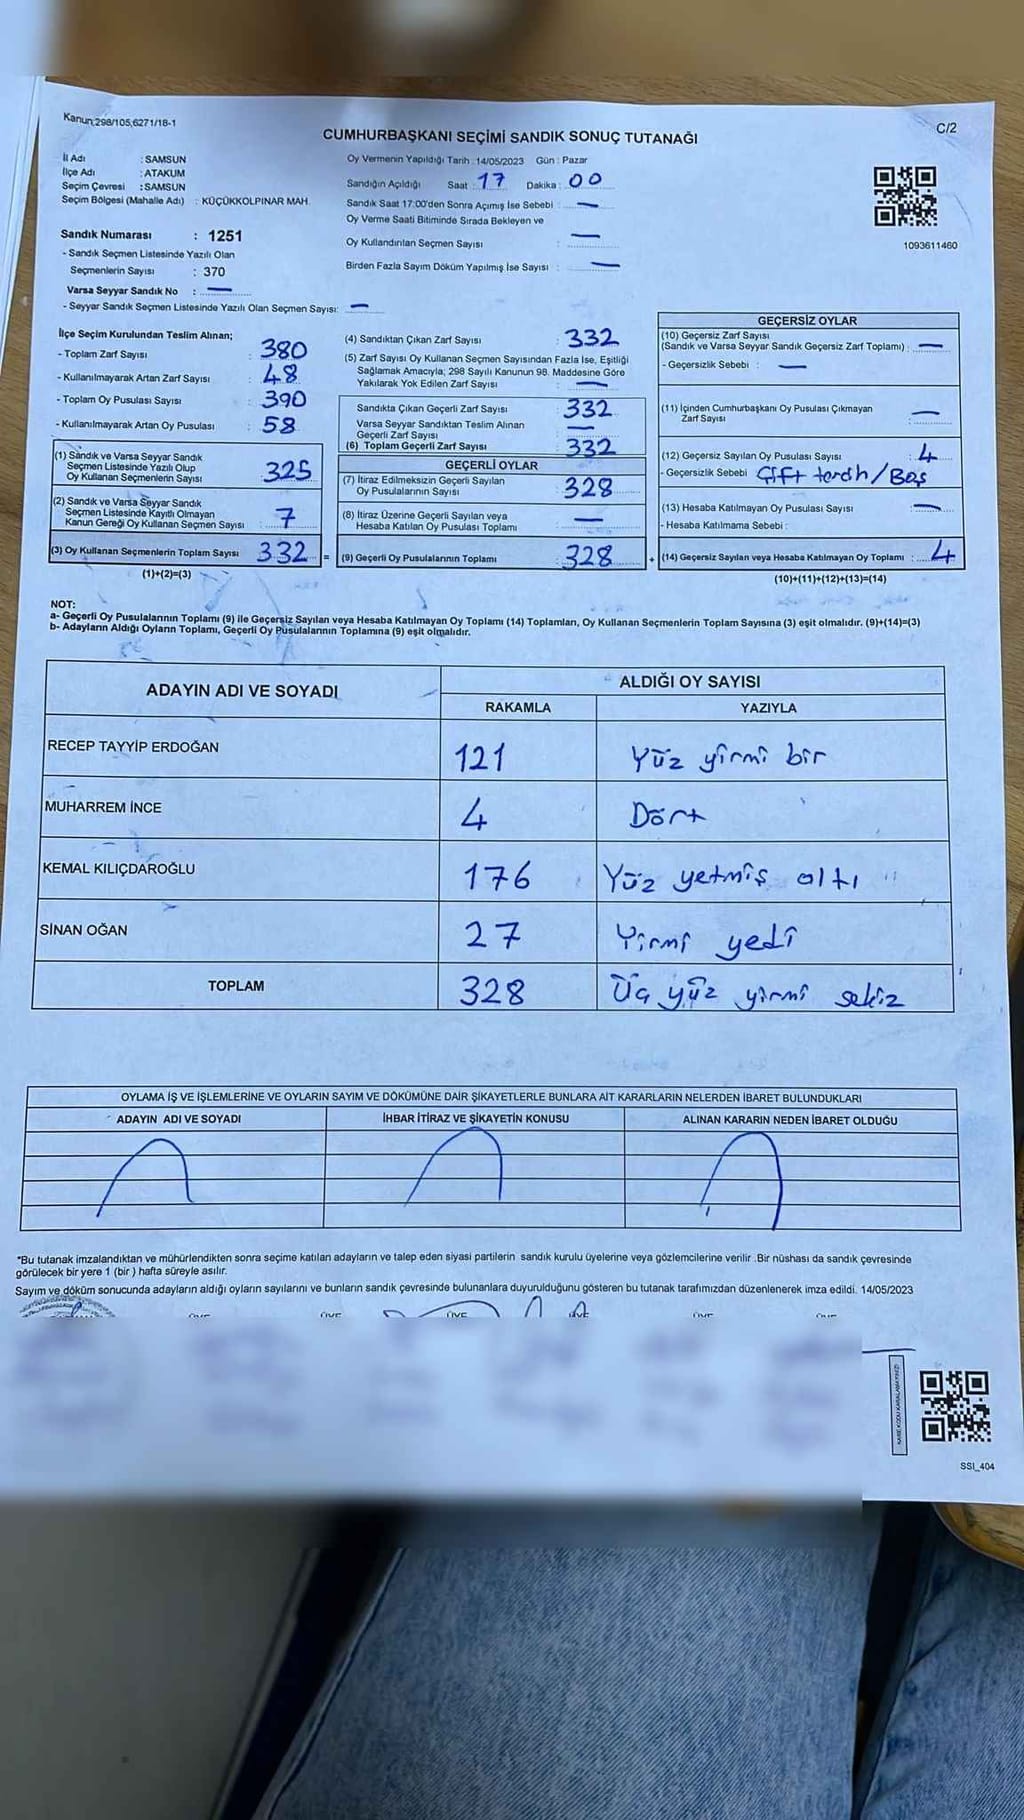 Kanun;298/105,6271/18-1
C/2
CUMHURBAŞKANI SEÇİMİ SANDIK SONUÇ TUTANAĞI
İl Adı : SAMSUN
İlçe Adı : ATAKUM
Seçim Çevresi : SAMSUN
Seçim Bölgesi (Mahalle Adı) : KÜÇÜKKOLPINAR MAH.
Oy Vermenin Yapıldığı Tarih : 14/05/2023 Gün : Pazar
Sandığın Açıldığı Saat : 17 Dakika : 00
Sandık Saat 17:00'den Sonra Açımış İse Sebebi : —
Oy Verme Saati Bitiminde Sırada Bekleyen ve
Oy Kullandırılan Seçmen Sayısı : —
Birden Fazla Sayım Döküm Yapılmış İse Sayısı : —
1093611460
Sandık Numarası : 1251
- Sandık Seçmen Listesinde Yazılı Olan
Seçmenlerin Sayısı : 370
Varsa Seyyar Sandık No : —
- Seyyar Sandık Seçmen Listesinde Yazılı Olan Seçmen Sayısı: —
İlçe Seçim Kurulundan Teslim Alınan;
- Toplam Zarf Sayısı : 380
- Kullanılmayarak Artan Zarf Sayısı : 48
- Toplam Oy Pusulası Sayısı : 390
- Kullanılmayarak Artan Oy Pusulası : 58
(1) Sandık ve Varsa Seyyar Sandık
Seçmen Listesinde Yazılı Olup
Oy Kullanan Seçmenlerin Sayısı : 325
(2) Sandık ve Varsa Seyyar Sandık
Seçmen Listesinde Kayıtlı Olmayan
Kanun Gereği Oy Kullanan Seçmen Sayısı : 7
(3) Oy Kullanan Seçmenlerin Toplam Sayısı : 332 =
(1)+(2)=(3)
(4) Sandıktan Çıkan Zarf Sayısı : 332
(5) Zarf Sayısı Oy Kullanan Seçmen Sayısından Fazla İse, Eşitliği
Sağlamak Amacıyla; 298 Sayılı Kanunun 98. Maddesine Göre
Yakılarak Yok Edilen Zarf Sayısı : —
Sandıkta Çıkan Geçerli Zarf Sayısı : 332
Varsa Seyyar Sandıktan Teslim Alınan
Geçerli Zarf Sayısı : —
(6) Toplam Geçerli Zarf Sayısı : 332
GEÇERLİ OYLAR
(7) İtiraz Edilmeksizin Geçerli Sayılan
Oy Pusulalarının Sayısı : 328
(8) İtiraz Üzerine Geçerli Sayılan veya
Hesaba Katılan Oy Pusulası Toplamı : —
(9) Geçerli Oy Pusulalarının Toplamı : 328 +
GEÇERSİZ OYLAR
(10) Geçersiz Zarf Sayısı
(Sandık ve Varsa Seyyar Sandık Geçersiz Zarf Toplamı) : —
- Geçersizlik Sebebi : —
(11) İçinden Cumhurbaşkanı Oy Pusulası Çıkmayan
Zarf Sayısı : —
(12) Geçersiz Sayılan Oy Pusulası Sayısı : 4
- Geçersizlik Sebebi Çift tercih/Boş
(13) Hesaba Katılmayan Oy Pusulası Sayısı : —
- Hesaba Katılmama Sebebi :
(14) Geçersiz Sayılan veya Hesaba Katılmayan Oy Toplamı : 4
(10)+(11)+(12)+(13)=(14)
NOT:
a- Geçerli Oy Pusulalarının Toplamı (9) ile Geçersiz Sayılan veya Hesaba Katılmayan Oy Toplamı (14) Toplamları, Oy Kullanan Seçmenlerin Toplam Sayısına (3) eşit olmalıdır. (9)+(14)=(3)
b- Adayların Aldığı Oyların Toplamı, Geçerli Oy Pusulalarının Toplamına (9) eşit olmalıdır.
ADAYIN ADI VE SOYADI ALDIĞI OY SAYISI
RAKAMLA YAZIYLA
RECEP TAYYİP ERDOĞAN 121 Yüz yirmi bir
MUHARREM İNCE 4 Dört
KEMAL KILIÇDAROĞLU 176 Yüz yetmiş altı
SİNAN OĞAN 27 Yirmi yedi
TOPLAM 328 Üç yüz yirmi sekiz
OYLAMA İŞ VE İŞLEMLERİNE VE OYLARIN SAYIM VE DÖKÜMÜNE DAİR ŞİKAYETLERLE BUNLARA AİT KARARLARIN NELERDEN İBARET BULUNDUKLARI
ADAYIN ADI VE SOYADI İHBAR İTİRAZ VE ŞİKAYETİN KONUSU ALINAN KARARIN NEDEN İBARET OLDUĞU
*Bu tutanak imzalandıktan ve mühürlendikten sonra seçime katılan adayların ve talep eden siyasi partilerin sandık kurulu üyelerine veya gözlemcilerine verilir .Bir nüshası da sandık çevresinde
görülecek bir yere 1 (bir ) hafta süreyle asılır.
Sayım ve döküm sonucunda adayların aldığı oyların sayılarını ve bunların sandık çevresinde bulunanlara duyurulduğunu gösteren bu tutanak tarafımızdan düzenlenerek imza edildi. 14/05/2023
ÜYE ÜYE ÜYE ÜYE ÜYE ÜYE
SSI_404